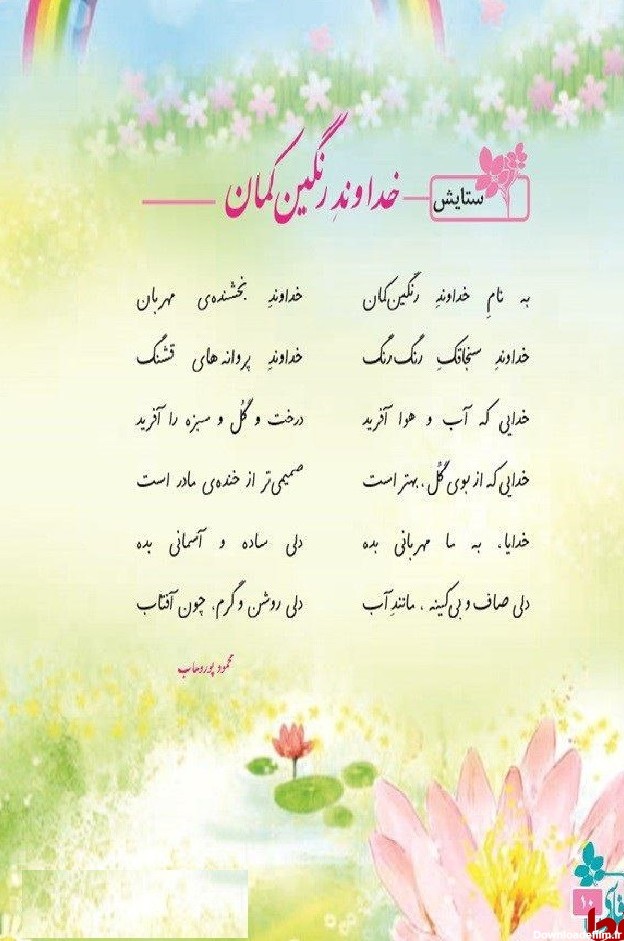 ستایش خداوندِ رنگین‌کمان
به نامِ خداوندِ رنگین‌کمان خداوندِ بخشنده‌ی مهربان
خداوندِ سنجاقکِ رنگ رنگ خداوندِ پروانه‌های قشنگ
خدایی که آب و هوا آفرید درخت و گُل و سبزه را آفرید
خدایی که از بوی گُل، بهتر است صمیمی‌تر از خنده‌ی مادر است
خدایا، به ما مهربانی بده دلی ساده و آسمانی بده
دلی صاف و بی‌کینه، مانندِ آب دلی روشن و گرم، چون آفتاب
محمود پوروهاب
۱۰